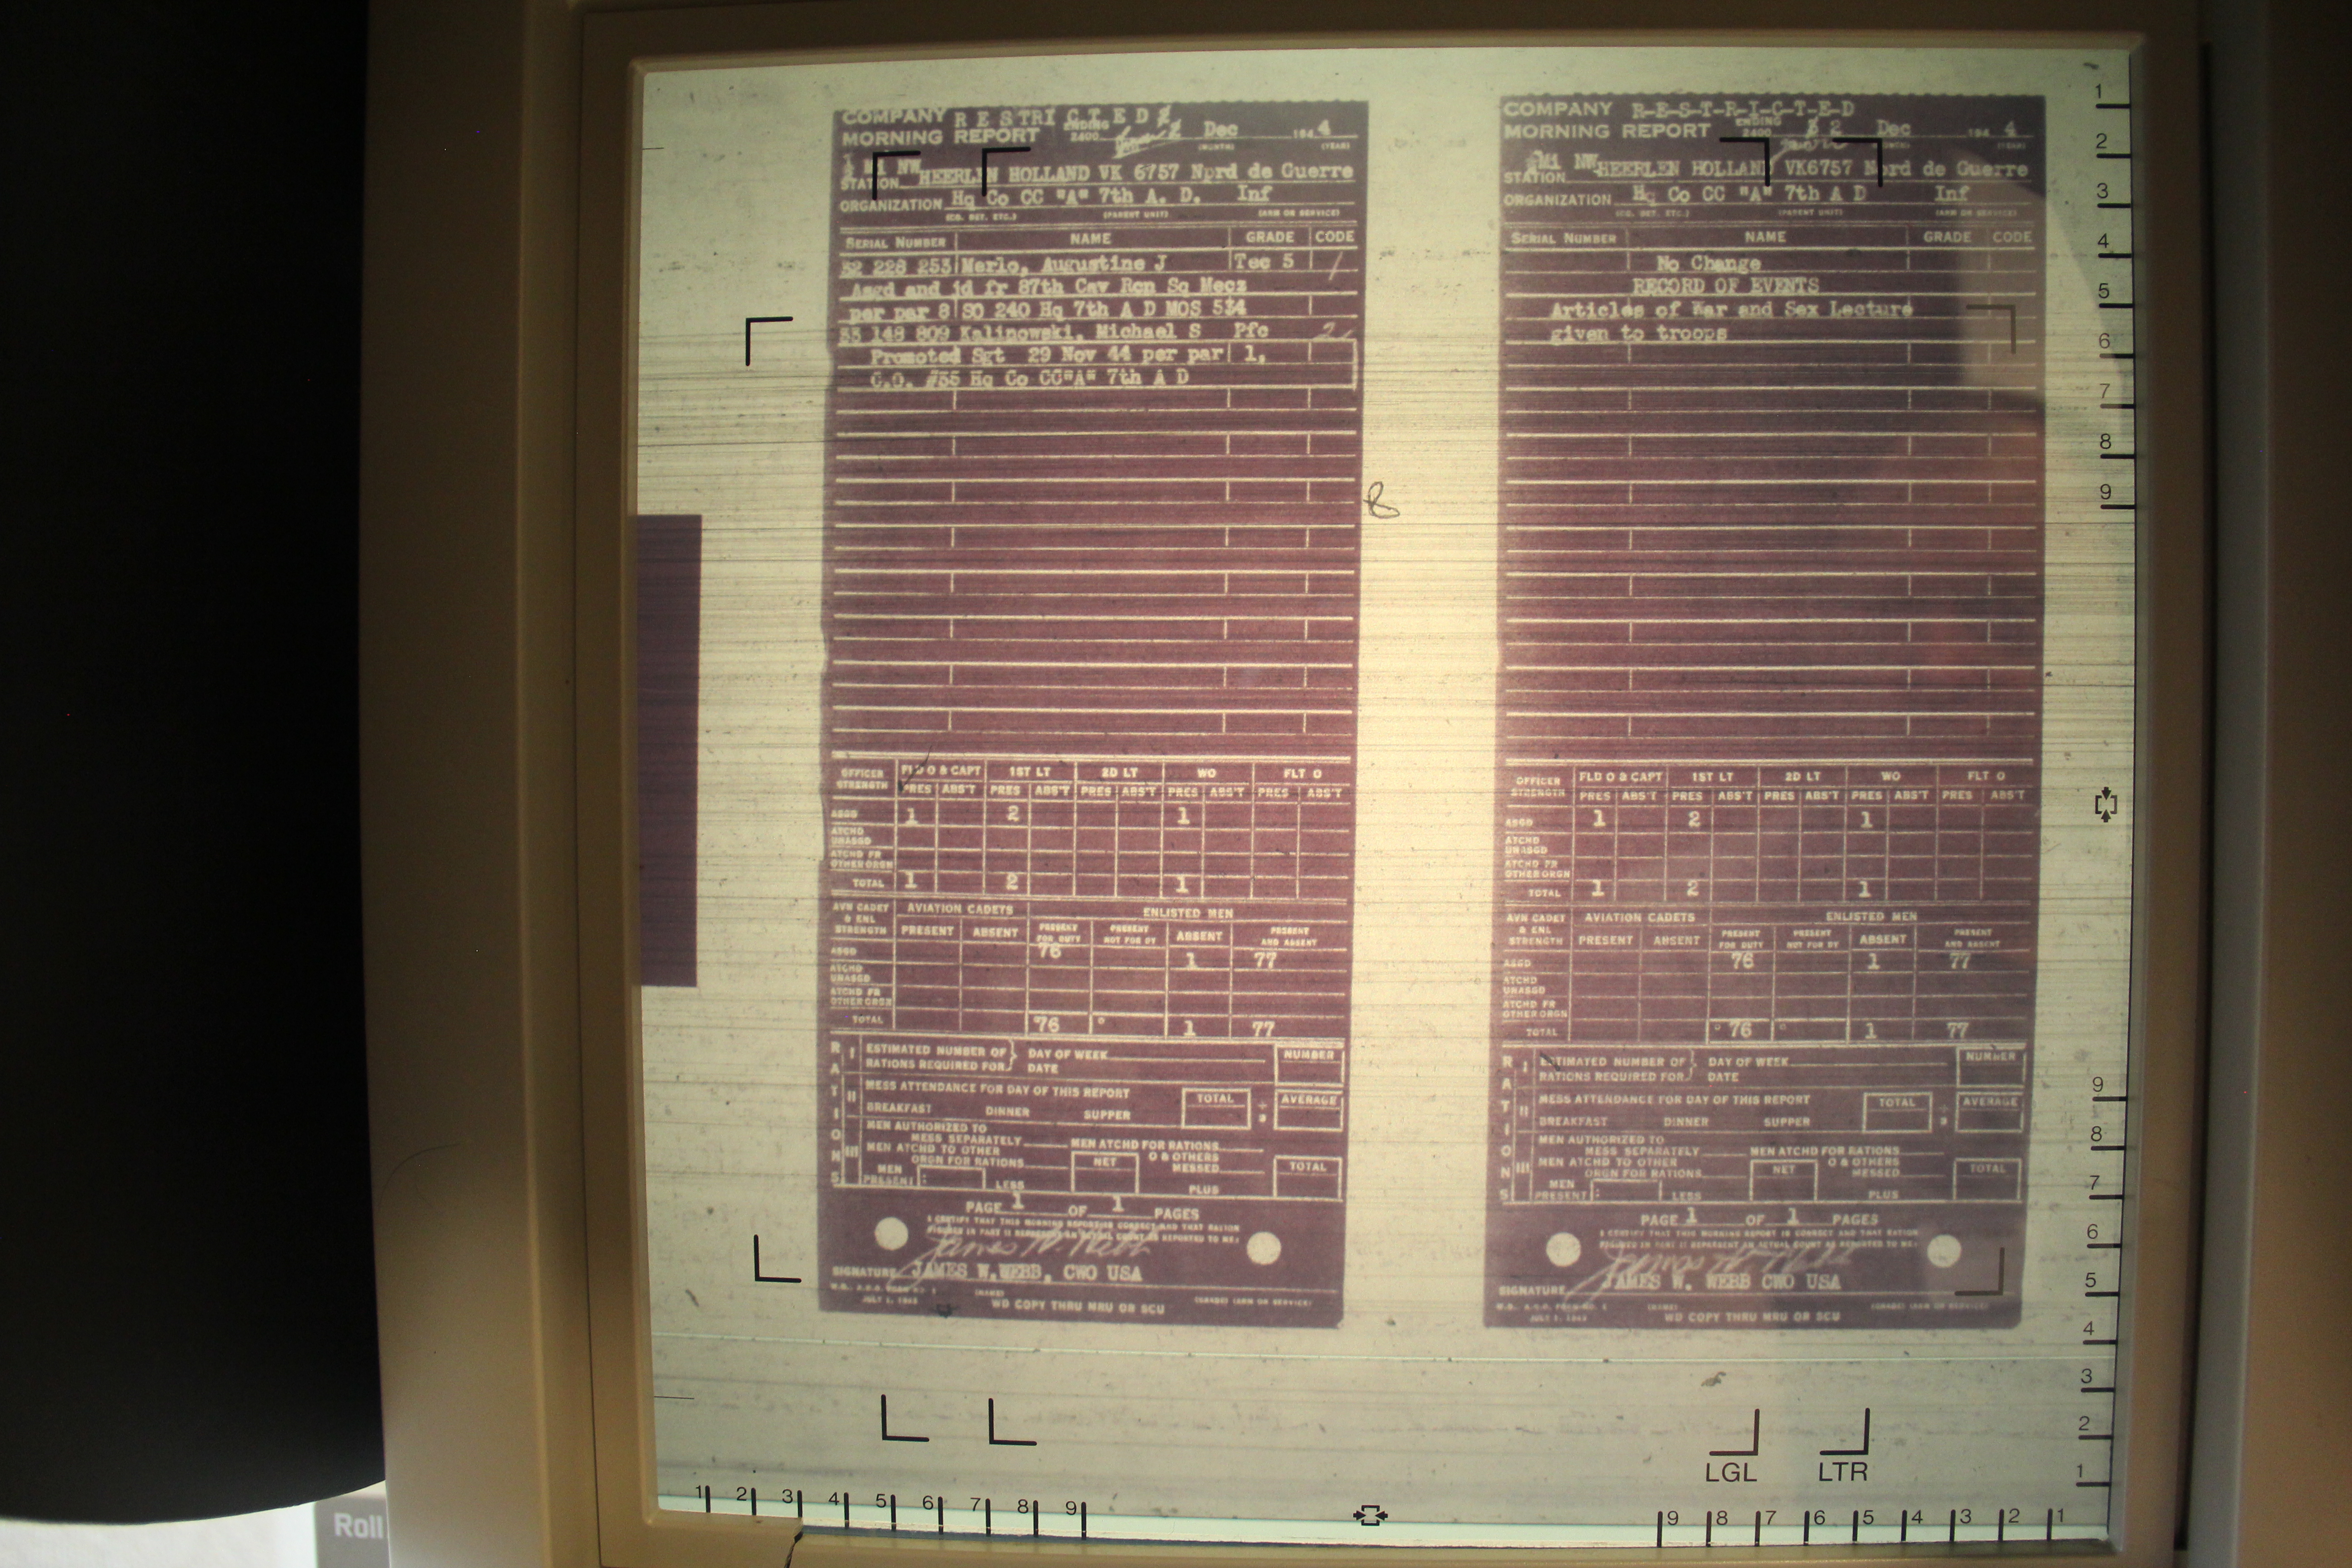 COMPANY R E S T R I C T E D
MORNING REPORT ENDING 2400 Dec 194 4
(MONTH) (YEAR)
Mi NW
STATION HEERLEN HOLLAND VK 6757 Nord de Guerre
ORGANIZATION Hq Co CC "A" 7th A. D. Inf
(CO. DET. ETC.) (PARENT UNIT) (ARM OR SERVICE)
SERIAL NUMBER NAME GRADE CODE
32 228 253 Merlo, Augustine J Tec 5 1
Asgd and jd fr 87th Cav Rcn Sq Mecz
per par 8 SO 240 Hq 7th A D MOS 534
33 148 809 Kalinowski, Michael S Pfc 2
Promoted Sgt 29 Nov 44 per par 1,
C.O. #35 Hq Co CC"A" 7th A D
OFFICER STRENGTH FLD O & CAPT 1ST LT 2D LT WO FLT O
PRES ABS'T PRES ABS'T PRES ABS'T PRES ABS'T PRES ABS'T
ASGD 1 2 1
ATCHD UNASGD
ATCHD FR OTHER ORGN
TOTAL 1 2 1
AVN CADET & ENL STRENGTH AVIATION CADETS ENLISTED MEN
PRESENT ABSENT PRESENT FOR DUTY PRESENT NOT FOR DY ABSENT PRESENT AND ABSENT
ASGD 76 1 77
ATCHD UNASGD
ATCHD FR OTHER ORGN
TOTAL 76 1 77
RATIONS
I ESTIMATED NUMBER OF DAY OF WEEK NUMBER
RATIONS REQUIRED FOR DATE
II MESS ATTENDANCE FOR DAY OF THIS REPORT TOTAL AVERAGE
BREAKFAST DINNER SUPPER ÷ 3
III MEN AUTHORIZED TO
MESS SEPARATELY MEN ATCHD FOR RATIONS
MEN ATCHD TO OTHER O & OTHERS
ORGN FOR RATIONS NET MESSED TOTAL
MEN PRESENT: LESS PLUS
PAGE 1 OF 1 PAGES
I CERTIFY THAT THIS MORNING REPORT IS CORRECT AND THAT RATION
FIGURES IN PART II REPRESENT AN ACTUAL COUNT AS REPORTED TO ME:
James W. Webb
SIGNATURE JAMES W. WEBB, CWO USA
W.D., A.G.O. FORM NO. 1 (NAME) (GRADE) (ARM OR SERVICE)
JULY 1, 1943 WD COPY THRU MRU OR SCU
COMPANY R-E-S-T-R-I-C-T-E-D
MORNING REPORT ENDING 2400 2 Dec 194 4
(YEAR)
Mi NW
STATION HEERLEN HOLLAND VK6757 Nord de Guerre
ORGANIZATION Hq Co CC "A" 7th A D Inf
(CO. DET. ETC.) (PARENT UNIT) (ARM OR SERVICE)
SERIAL NUMBER NAME GRADE CODE
No Change
RECORD OF EVENTS
Articles of War and Sex Lecture
given to troops
OFFICER STRENGTH FLD O & CAPT 1ST LT 2D LT WO FLT O
PRES ABS'T PRES ABS'T PRES ABS'T PRES ABS'T PRES ABS'T
ASGD 1 2 1
ATCHD UNASGD
ATCHD FR OTHER ORGN
TOTAL 1 2 1
AVN CADET & ENL STRENGTH AVIATION CADETS ENLISTED MEN
PRESENT ABSENT PRESENT FOR DUTY PRESENT NOT FOR DY ABSENT PRESENT AND ABSENT
ASGD 76 1 77
ATCHD UNASGD
ATCHD FR OTHER ORGN
TOTAL 76 1 77
RATIONS
I ESTIMATED NUMBER OF DAY OF WEEK NUMBER
RATIONS REQUIRED FOR DATE
II MESS ATTENDANCE FOR DAY OF THIS REPORT TOTAL AVERAGE
BREAKFAST DINNER SUPPER ÷ 3
III MEN AUTHORIZED TO
MESS SEPARATELY MEN ATCHD FOR RATIONS
MEN ATCHD TO OTHER O & OTHERS
ORGN FOR RATIONS NET MESSED TOTAL
MEN PRESENT: LESS PLUS
PAGE 1 OF 1 PAGES
I CERTIFY THAT THIS MORNING REPORT IS CORRECT AND THAT RATION
FIGURES IN PART II REPRESENT AN ACTUAL COUNT AS REPORTED TO ME:
James W. Webb
SIGNATURE JAMES W. WEBB CWO USA
W.D., A.G.O. FORM NO. 1 (NAME) (GRADE) (ARM OR SERVICE)
JULY 1, 1943 WD COPY THRU MRU OR SCU
1
2
3
4
5
6
7
8
9
9
8
7
6
5
4
3
2
1
LGL LTR
1 2 3 4 5 6 7 8 9 9 8 7 6 5 4 3 2 1
Roll